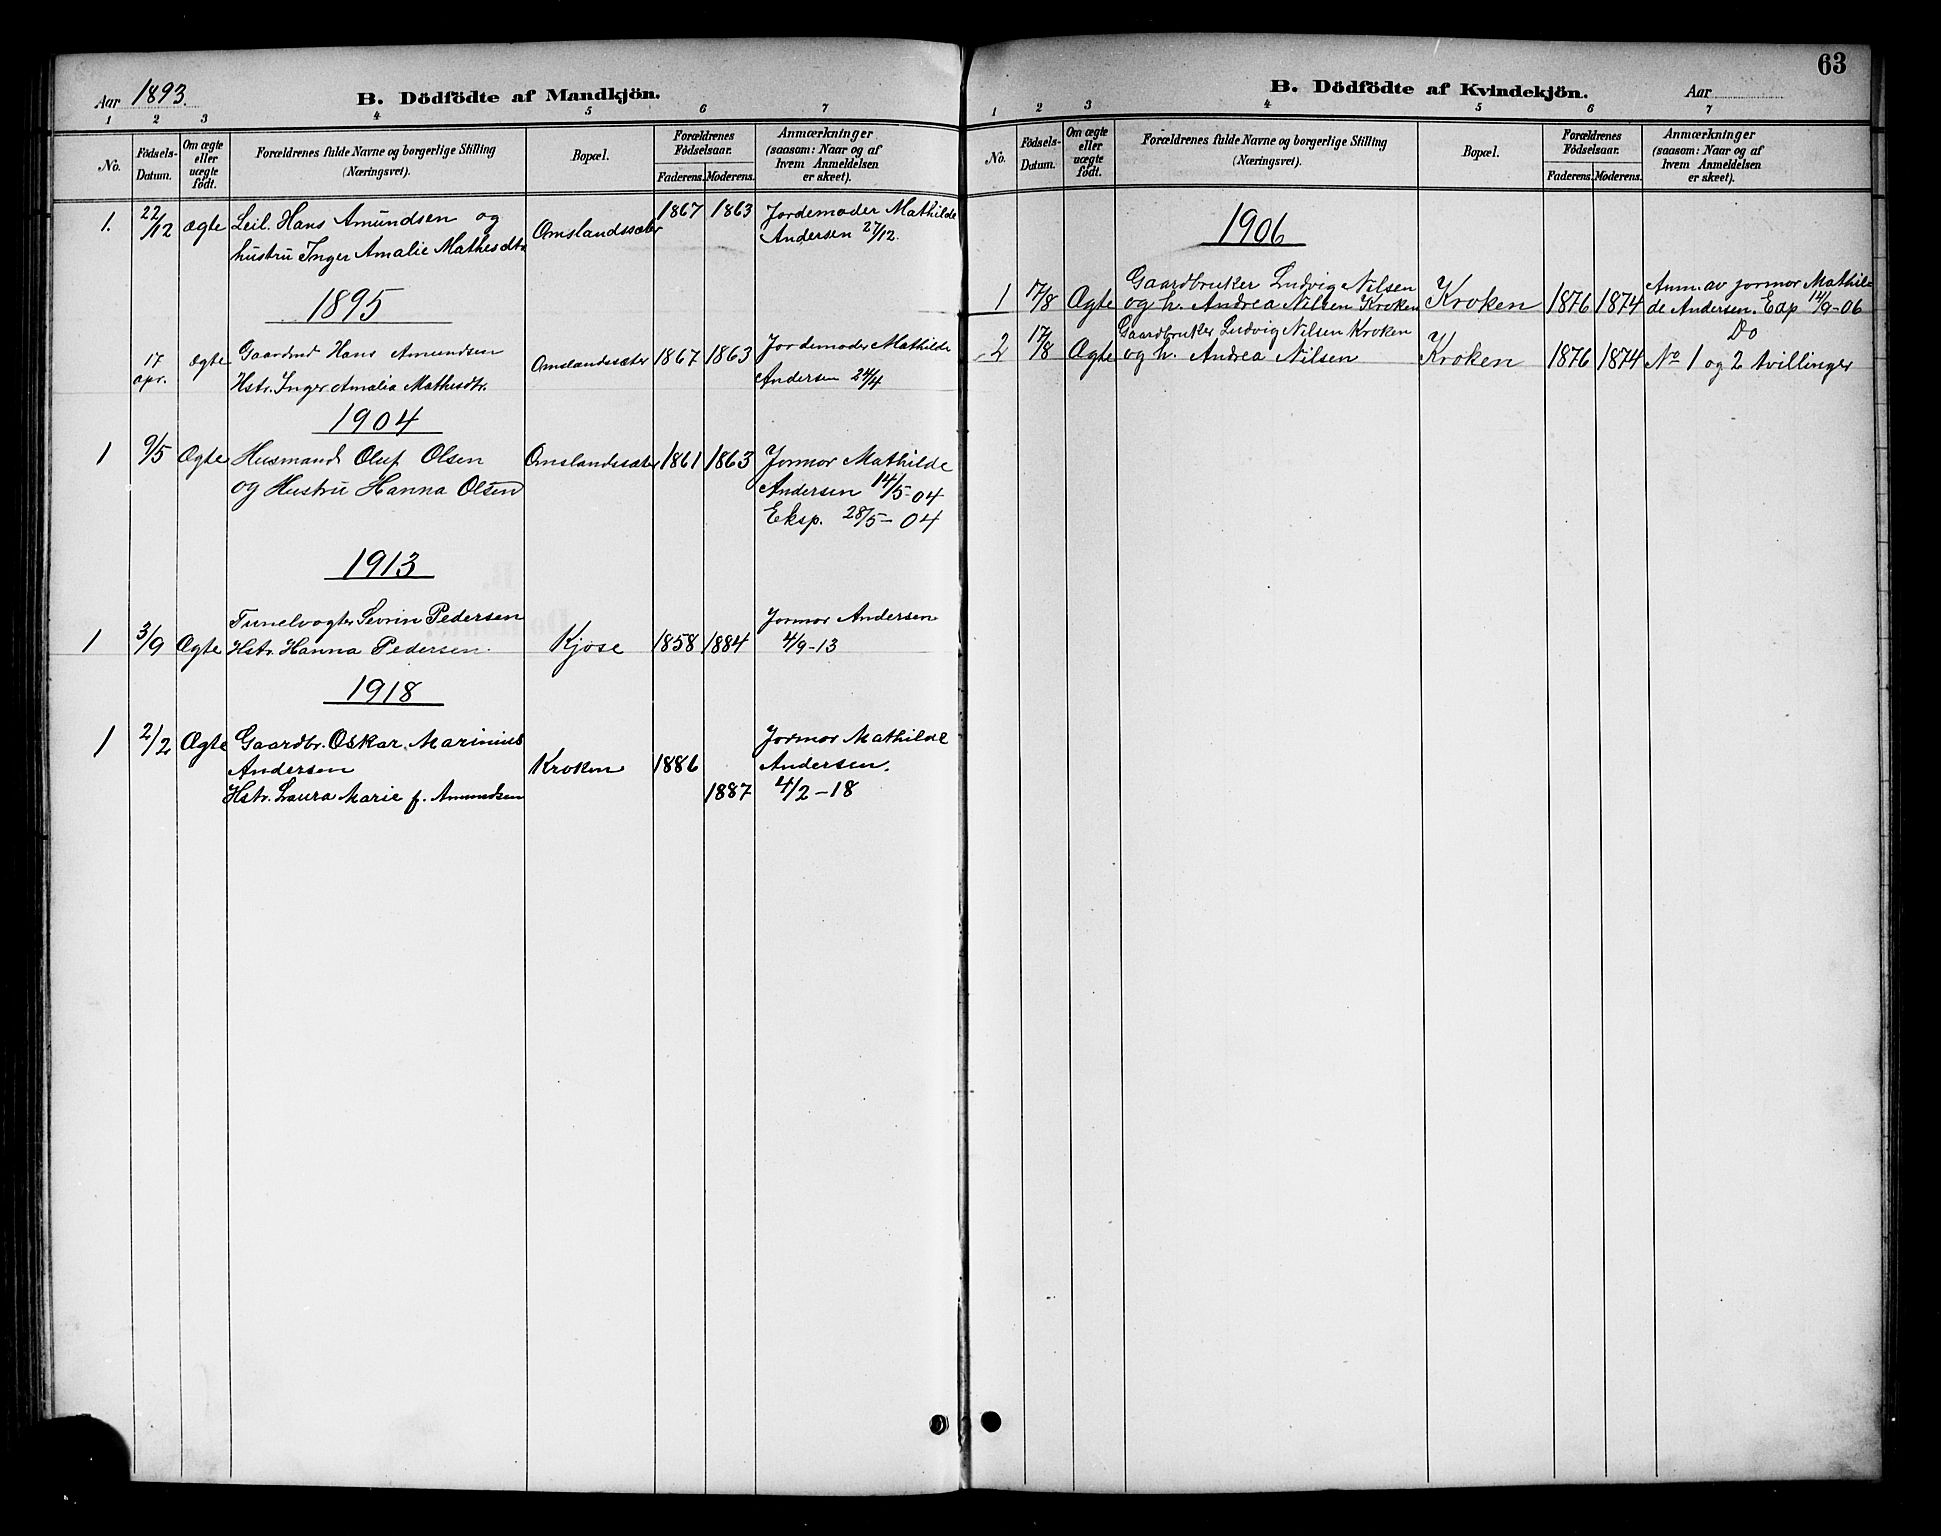 Aar 1893. B. Dödfödte af Mandkjön.
1 2 3 4 5 6 7
No. Födsels-Datum. Om ægte eller uægte födt. Forældrenes fulde Navne og borgerlige Stilling (Næringsvei). Bopæl. Forældrenes Födselsaar. Faderens. Moderens. Anmærkninger (saasom: Naar og af hvem Anmeldelsen er skeet).
1. 22/12 ægte Leil. Hans Amundsen og Omslandssæter 1867 1863 Jordemoder Mathilde
hustru Inger Amalie Mathesdtr. Andersen 27/12.
1895
17 apr. ægte Gaardmd Hans Amundsen Omslandssæter 1867 1863 Jordemoder Mathilde
Hstr. Inger Amalia Mathisdtr. Andersen 24/4
1904
1 9/5 Ægte Husmand Oluf Olsen Omslandssæter 1861 1863 Jormor Mathilde
og Hustru Hanna Olsen Andersen 14/5-04
Eksp. 28/5-04
1913
1 3/9 Ægte Tunelvogter Sevrin Pedersen Kjose 1858 1884 Jormor Andersen
Hstr. Hanna Pedersen. 4/9-13
1918
1 2/2 Ægte Gaardbr. Oskar Marinius Kroken 1886 Jormor Mathilde
Andersen Andersen.
Hstr. Laura Marie f. Amundsen 1887 4/2-18
63
B. Dödfödte af Kvindekjön. Aar
1 2 3 4 5 6 7
No. Födsels-Datum. Om ægte eller uægte födt. Forældrenes fulde Navne og borgerlige Stilling (Næringsvei). Bopæl. Forældrenes Födselsaar. Faderens. Moderens. Anmærkninger (saasom: Naar og af hvem Anmeldelsen er skeet).
1906
1 17/8 Ægte Gaardbruker Ludvig Nilsen Kroken 1876 1874 Anm. av jormor Mathil-
og h. Andrea Nilsen Kroken de Andersen. Exp 14/9-06
2 17/8 Ægte Gaardbruker Ludvig Nilsen Kroken Kroken 1876 1874 Do
og h. Andrea Nilsen No 1 og 2 tvillinger